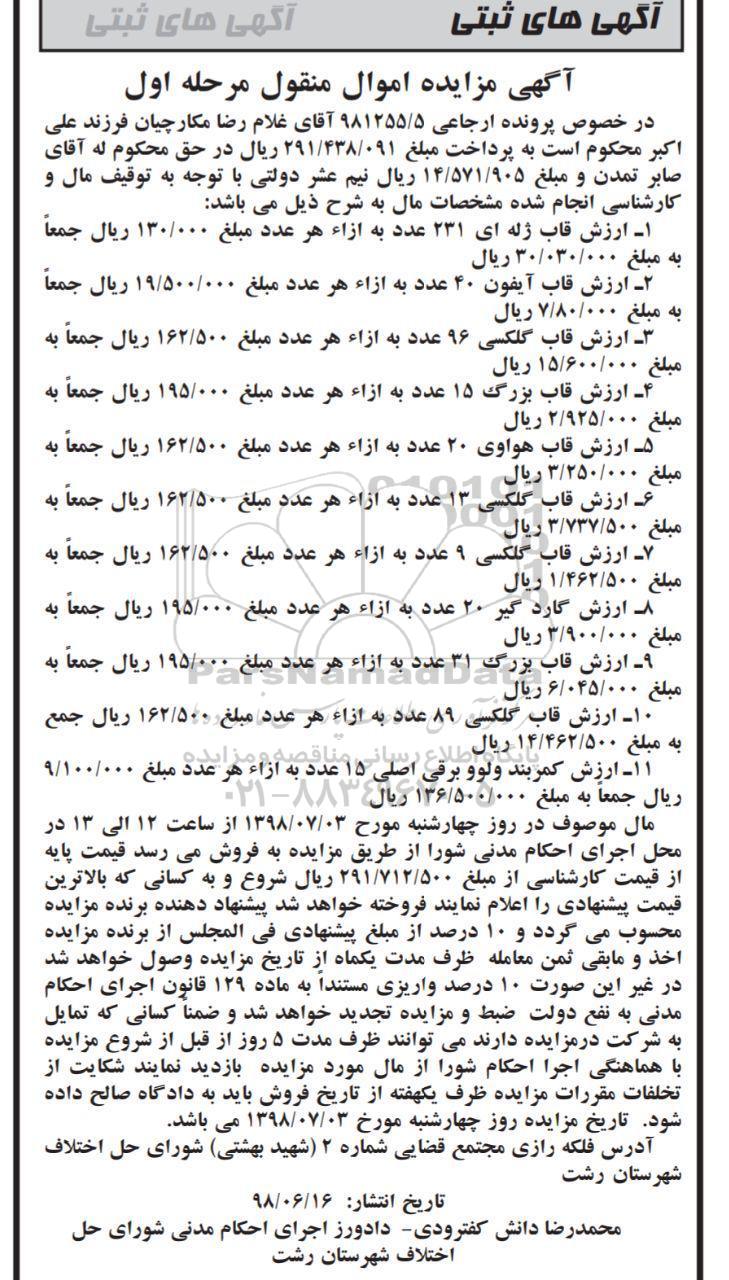 آگهی های ثبتی آگهی های ثبتی
آگهی مزایده اموال منقول مرحله اول
در خصوص پرونده ارجاعی ۹۸۱۲۵۵/۵ آقای غلام رضا مکارچیان فرزند علی
اکبر محکوم است به پرداخت مبلغ ۲۹۱/۴۳۸/۰۹۱ ریال در حق محکوم له آقای
صابر تمدن و مبلغ ۱۴/۵۷۱/۹۰۵ ریال نیم عشر دولتی با توجه به توقیف مال و
کارشناسی انجام شده مشخصات مال به شرح ذیل می باشد:
۱ـ ارزش قاب ژله ای ۲۳۱ عدد به ازاء هر عدد مبلغ ۱۳۰/۰۰۰ ریال جمعاً
به مبلغ ۳۰/۰۳۰/۰۰۰ ریال
۲ـ ارزش قاب آیفون ۴۰ عدد به ازاء هر عدد مبلغ ۱۹/۵۰۰/۰۰۰ ریال جمعاً
به مبلغ ۷/۸۰/۰۰۰ ریال
۳ـ ارزش قاب گلکسی ۹۶ عدد به ازاء هر عدد مبلغ ۱۶۲/۵۰۰ ریال جمعاً به
مبلغ ۱۵/۶۰۰/۰۰۰ ریال
۴ـ ارزش قاب بزرگ ۱۵ عدد به ازاء هر عدد مبلغ ۱۹۵/۰۰۰ ریال جمعاً به
مبلغ ۲/۹۲۵/۰۰۰ ریال
۵ـ ارزش قاب هواوی ۲۰ عدد به ازاء هر عدد مبلغ ۱۶۲/۵۰۰ ریال جمعاً به
مبلغ ۳/۲۵۰/۰۰۰ ریال
۶ـ ارزش قاب گلکسی ۱۳ عدد به ازاء هر عدد مبلغ ۱۶۲/۵۰۰ ریال جمعاً به
مبلغ ۳/۷۳۷/۵۰۰ ریال
۷ـ ارزش قاب گلکسی ۹ عدد به ازاء هر عدد مبلغ ۱۶۲/۵۰۰ ریال جمعاً به
مبلغ ۱/۴۶۲/۵۰۰ ریال
۸ـ ارزش گارد گیر ۲۰ عدد به ازاء هر عدد مبلغ ۱۹۵/۰۰۰ ریال جمعاً به
مبلغ ۳/۹۰۰/۰۰۰ ریال
۹ـ ارزش قاب بزرگ ۳۱ عدد به ازاء هر عدد مبلغ ۱۹۵/۰۰۰ ریال جمعاً به
ParsNamadData
مبلغ ۶/۰۴۵/۰۰۰ ریال
۱۰ـ ارزش قاب گلکسی ۸۹ عدد به ازاء هر عدد مبلغ ۱۶۲/۵۰۰ ریال جمع
به مبلغ ۱۴/۴۶۲/۵۰۰ ریال
پایگاه اطلاع رسانی مناقصه و مزایده
۱۱ـ ارزش کمربند ولوو برقی اصلی ۱۵ عدد به ازاء هر عدد مبلغ ۹/۱۰۰/۰۰۰
ریال جمعاً به مبلغ ۱۳۶/۵۰۰/۰۰۰ ریال
۰۲۱-۸۸۳۴۹۶۷۰-۵
مال موصوف در روز چهارشنبه مورخ ۱۳۹۸/۰۷/۰۳ از ساعت ۱۲ الی ۱۳ در
محل اجرای احکام مدنی شورا از طریق مزایده به فروش می رسد قیمت پایه
از قیمت کارشناسی از مبلغ ۲۹۱/۷۱۲/۵۰۰ ریال شروع و به کسانی که بالاترین
قیمت پیشنهادی را اعلام نمایند فروخته خواهد شد پیشنهاد دهنده برنده مزایده
محسوب می گردد و ۱۰ درصد از مبلغ پیشنهادی فی المجلس از برنده مزایده
اخذ و مابقی ثمن معامله ظرف مدت یکماه از تاریخ مزایده وصول خواهد شد
در غیر این صورت ۱۰ درصد واریزی مستنداً به ماده ۱۲۹ قانون اجرای احکام
مدنی به نفع دولت ضبط و مزایده تجدید خواهد شد و ضمناً کسانی که تمایل
به شرکت درمزایده دارند می توانند ظرف مدت ۵ روز از قبل از شروع مزایده
با هماهنگی اجرا احکام شورا از مال مورد مزایده بازدید نمایند شکایت از
تخلفات مقررات مزایده ظرف یکهفته از تاریخ فروش باید به دادگاه صالح داده
شود. تاریخ مزایده روز چهارشنبه مورخ ۱۳۹۸/۰۷/۰۳ می باشد.
آدرس فلکه رازی مجتمع قضایی شماره ۲ (شهید بهشتی) شورای حل اختلاف
شهرستان رشت
تاریخ انتشار: ۹۸/۰۶/۱۶
محمدرضا دانش کفترودی- دادورز اجرای احکام مدنی شورای حل
اختلاف شهرستان رشت